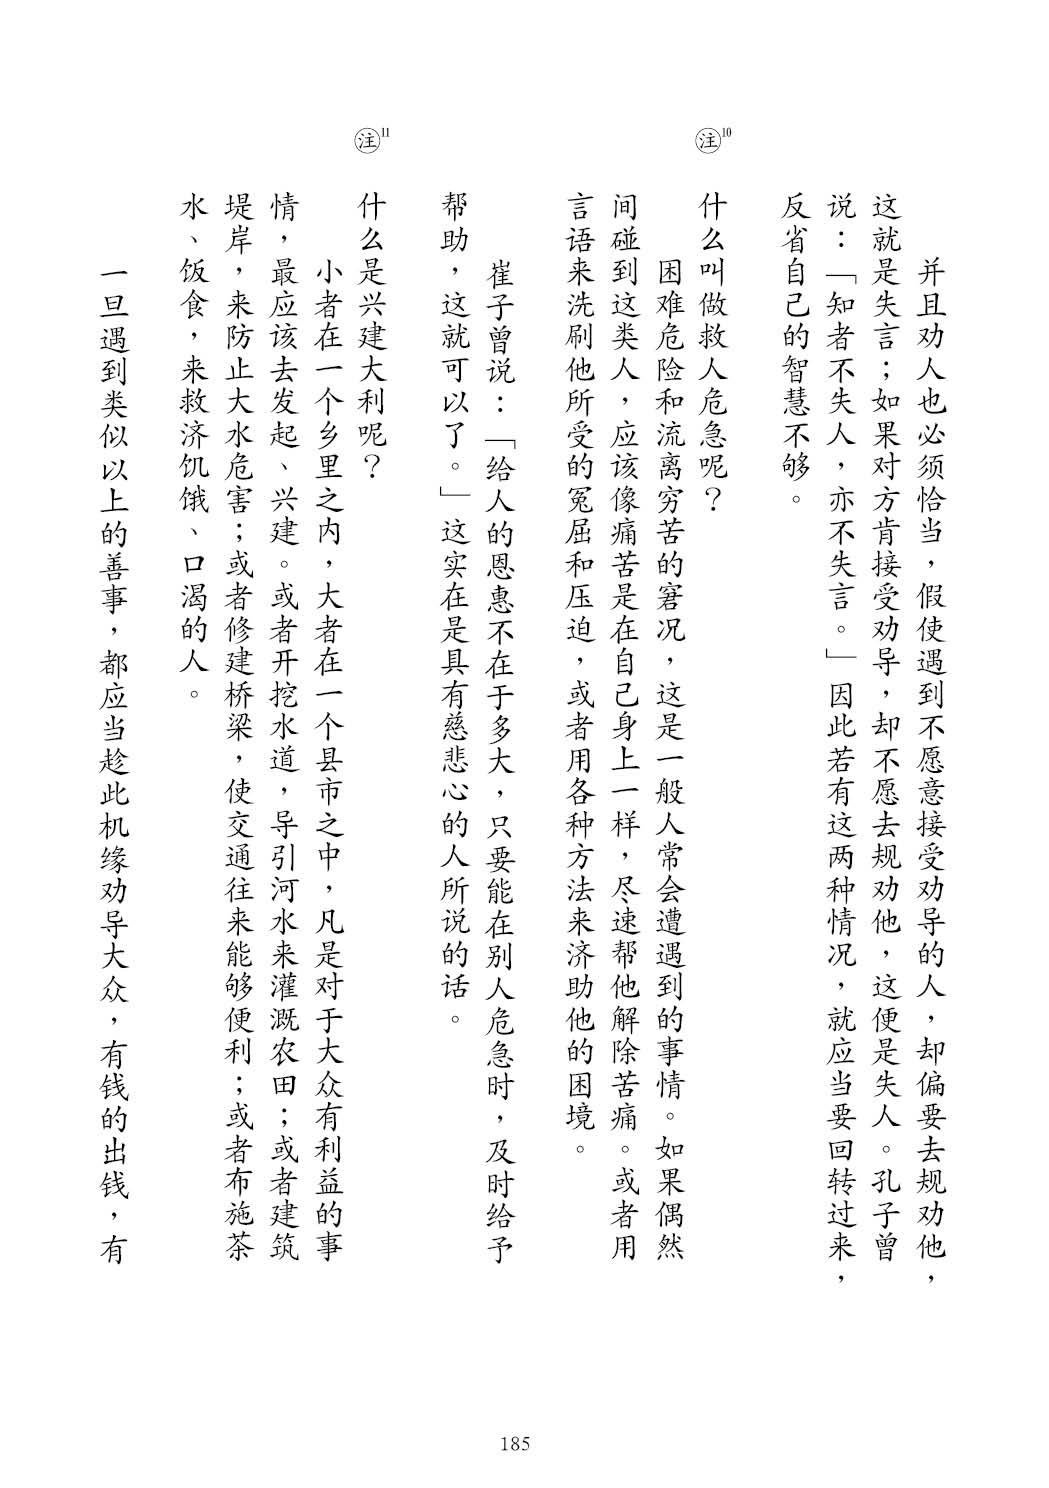 并且劝人也必须恰当，假使遇到不愿意接受劝导的人，却偏要去规劝他，
这就是失言；如果对方肯接受劝导，却不愿去规劝他，这便是失人。孔子曾
说：「知者不失人，亦不失言。」因此若有这两种情况，就应当要回转过来，
反省自己的智慧不够。
注10
什么叫做救人危急呢？
困难危险和流离穷苦的窘况，这是一般人常会遭遇到的事情。如果偶然
间碰到这类人，应该像痛苦是在自己身上一样，尽速帮他解除苦痛。或者用
言语来洗刷他所受的冤屈和压迫，或者用各种方法来济助他的困境。
崔子曾说：「给人的恩惠不在于多大，只要能在别人危急时，及时给予
帮助，这就可以了。」这实在是具有慈悲心的人所说的话。
注11
什么是兴建大利呢？
小者在一个乡里之内，大者在一个县市之中，凡是对于大众有利益的事
情，最应该去发起、兴建。或者开挖水道，导引河水来灌溉农田；或者建筑
堤岸，来防止大水危害；或者修建桥梁，使交通往来能够便利；或者布施茶
水、饭食，来救济饥饿、口渴的人。
一旦遇到类似以上的善事，都应当趁此机缘劝导大众，有钱的出钱，有
185